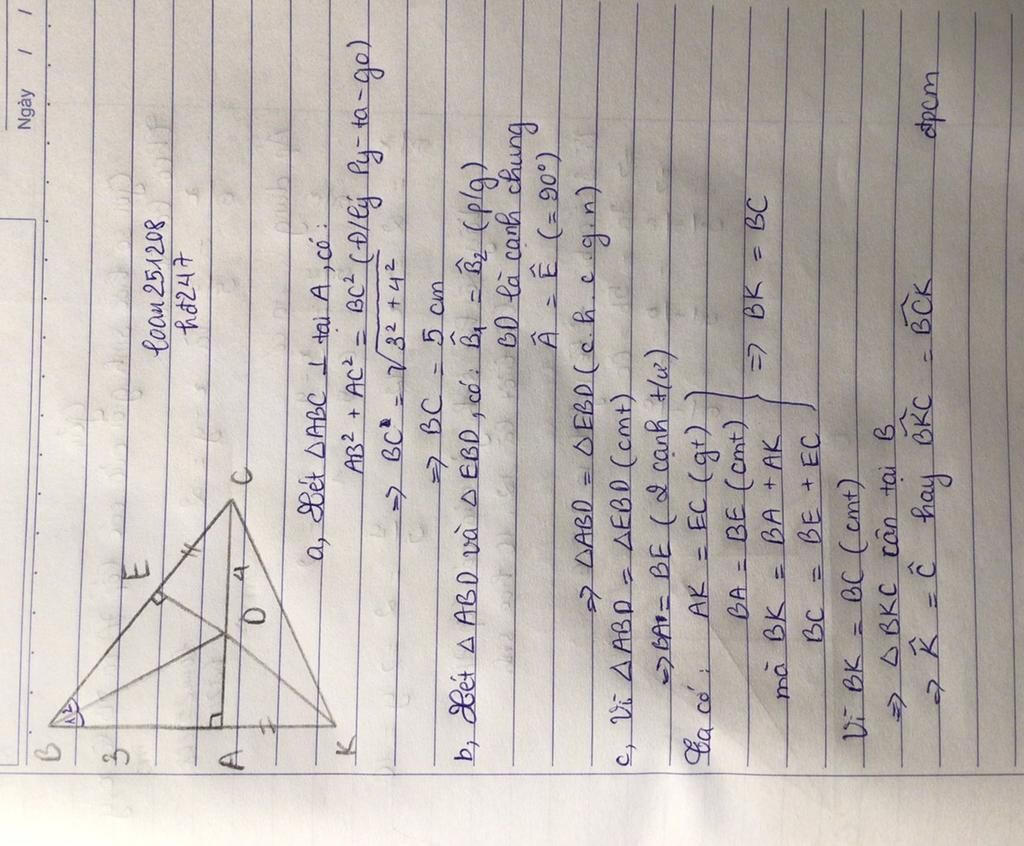 Ngày / /
B
1 2
3
E
A
D
4
C
K
loan251208
hd247
a, Xét △ABC ⊥ tại A, có:
AB² + AC² = BC² (Đ/lý Py-ta-go)
⇒ BC = √3² + 4²
⇒ BC = 5 cm
b, Xét △ABD và △EBD, có: B̂₁ = B̂₂ (p/g)
BD là cạnh chung
Â = Ê (= 90°)
⇒ △ABD = △EBD (c.h.c.g.n)
c, Vì △ABD = △EBD (cmt)
⇒ BA = BE (2 cạnh t/ư)
Ta có: AK = EC (gt)
BA = BE (cmt)
mà BK = BA + AK } ⇒ BK = BC
BC = BE + EC
Vì BK = BC (cmt)
⇒ △BKC cân tại B
⇒ K̂ = Ĉ hay B̂KC = B̂CK
đpcm